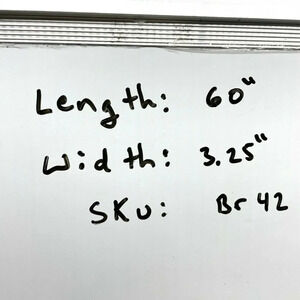 Length: 60"
Width: 3.25"
SKU: Br 42